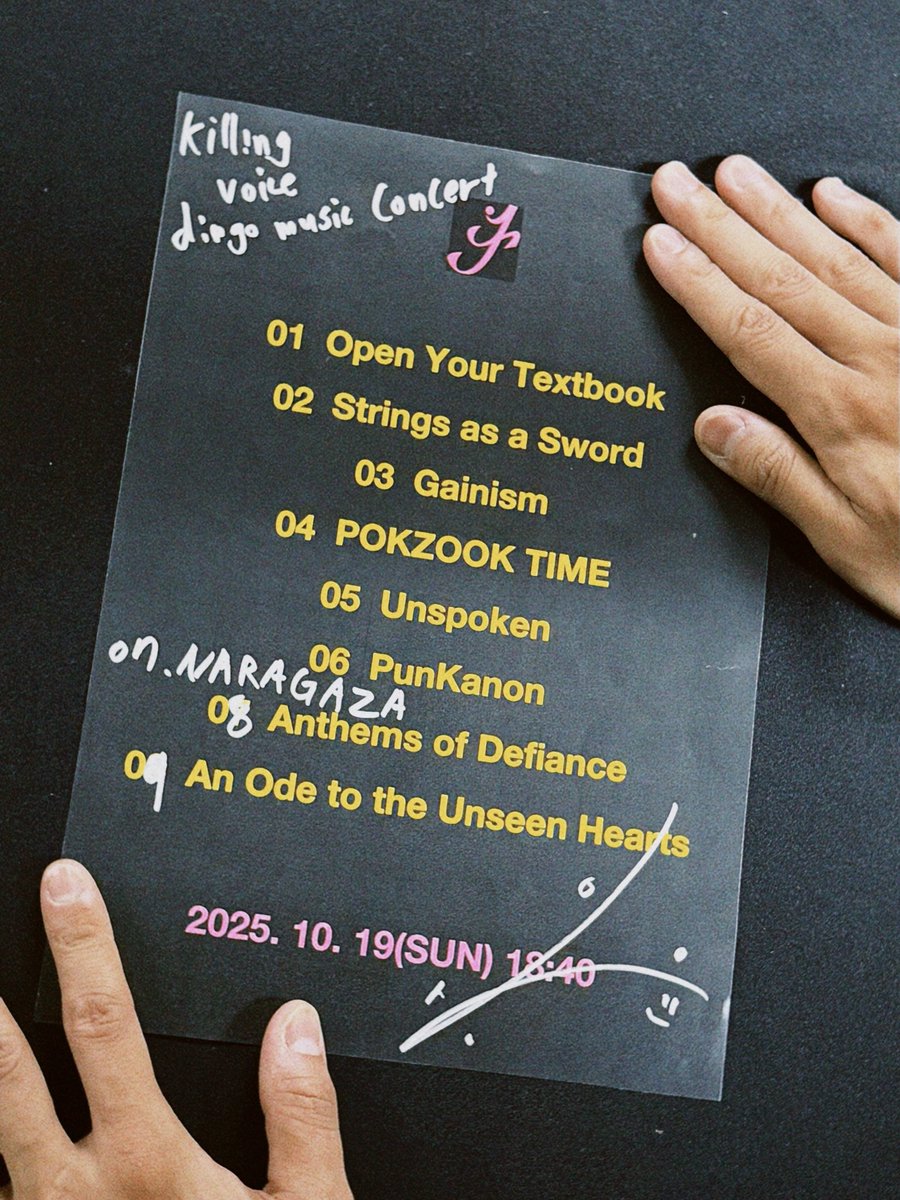 Kill!ng
voice
dingo music Concert
01 Open Your Textbook
02 Strings as a Sword
03 Gainism
04 POKZOOK TIME
05 Unspoken
06 PunKanon
on.NARAGAZA
08 Anthems of Defiance
09 An Ode to the Unseen Hearts
2025. 10. 19(SUN) 18:40